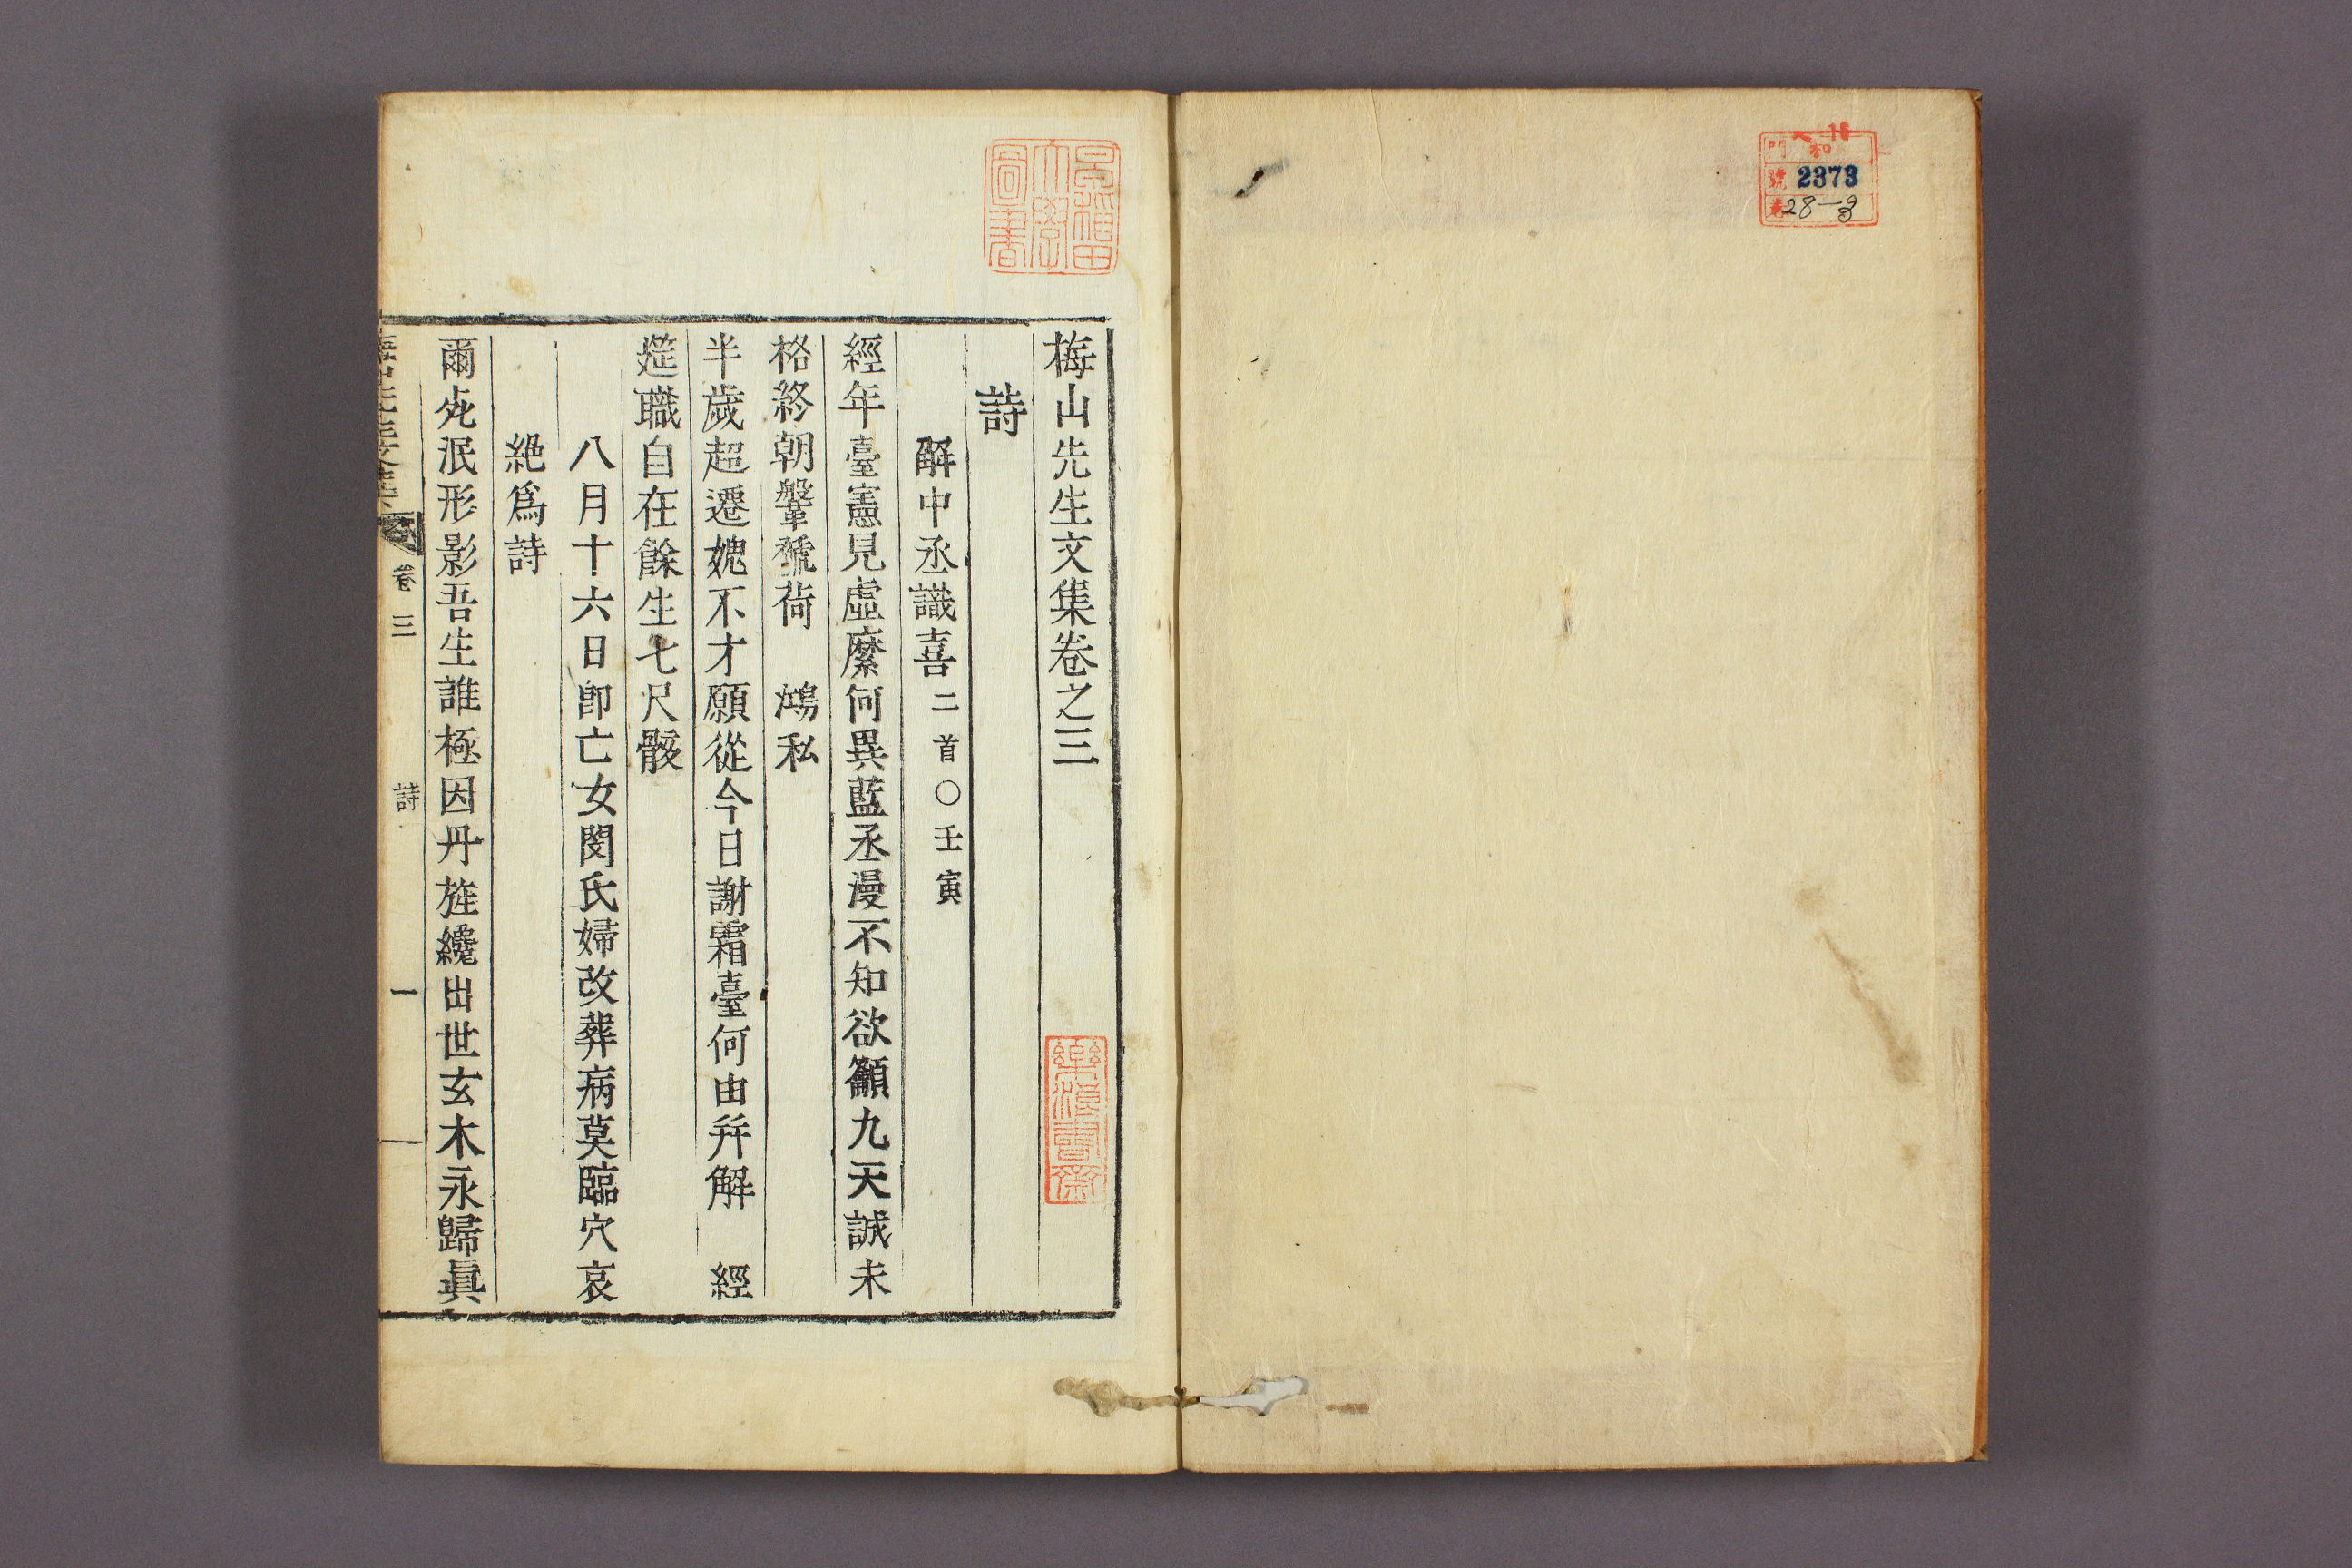 門
和
號 2373
卷 28-3
早稲田
大學
圖書
梅山先生文集卷之三
詩
解中丞識喜 二首○壬寅
經年臺憲見虛縻何異藍丞漫不知欲籲九天誠未
格終朝鞶褫荷 鴻私
半歲超遷媿不才願從今日謝霜臺何由幷解 經
筵職自在餘生七尺骸
八月十六日卽亡女閔氏婦改葬病莫臨穴哀
絕爲詩
爾死泯形影吾生誰極因丹旌纔出世玄木永歸眞
卷三
詩
一